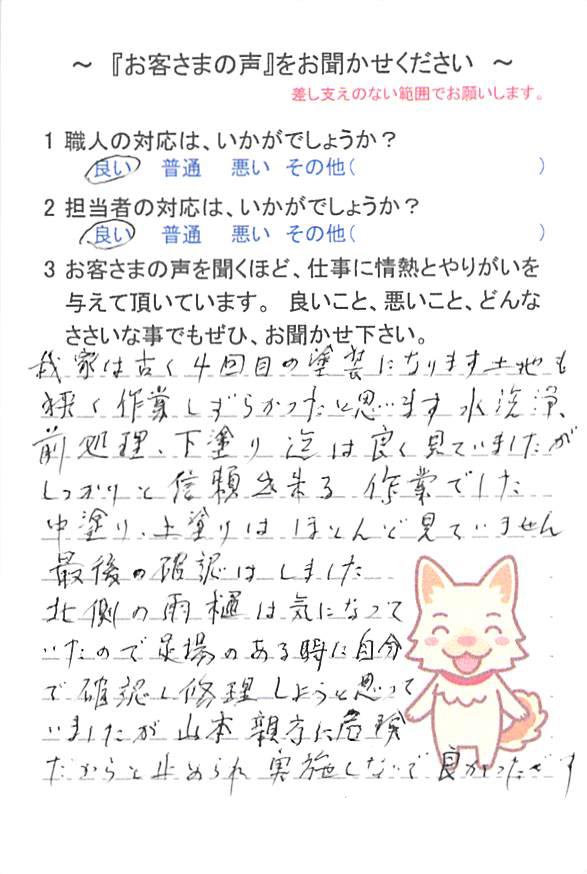 ～ 『お客さまの声』をお聞かせください ～
差し支えのない範囲でお願いします。
1 職人の対応は、いかがでしょうか？
良い 普通 悪い その他( )
2 担当者の対応は、いかがでしょうか？
良い 普通 悪い その他( )
3 お客さまの声を聞くほど、仕事に情熱とやりがいを
与えて頂いています。 良いこと、悪いこと、どんな
ささいな事でもぜひ、お聞かせ下さい。
我家は古く4回目の塗装になります土地も
狭く作業しずらかったと思います水洗浄、
前処理、下塗り迄は良く見ていましたが
しっかりと信頼出来る作業でした
中塗り、上塗りはほとんど見ていません
最後の確認はしました
北側の雨樋は気になって
いたので足場のある時に自分
で確認し修理しようと思って
いましたが山本親方に危険
だからと止められ実施しないで良かったです